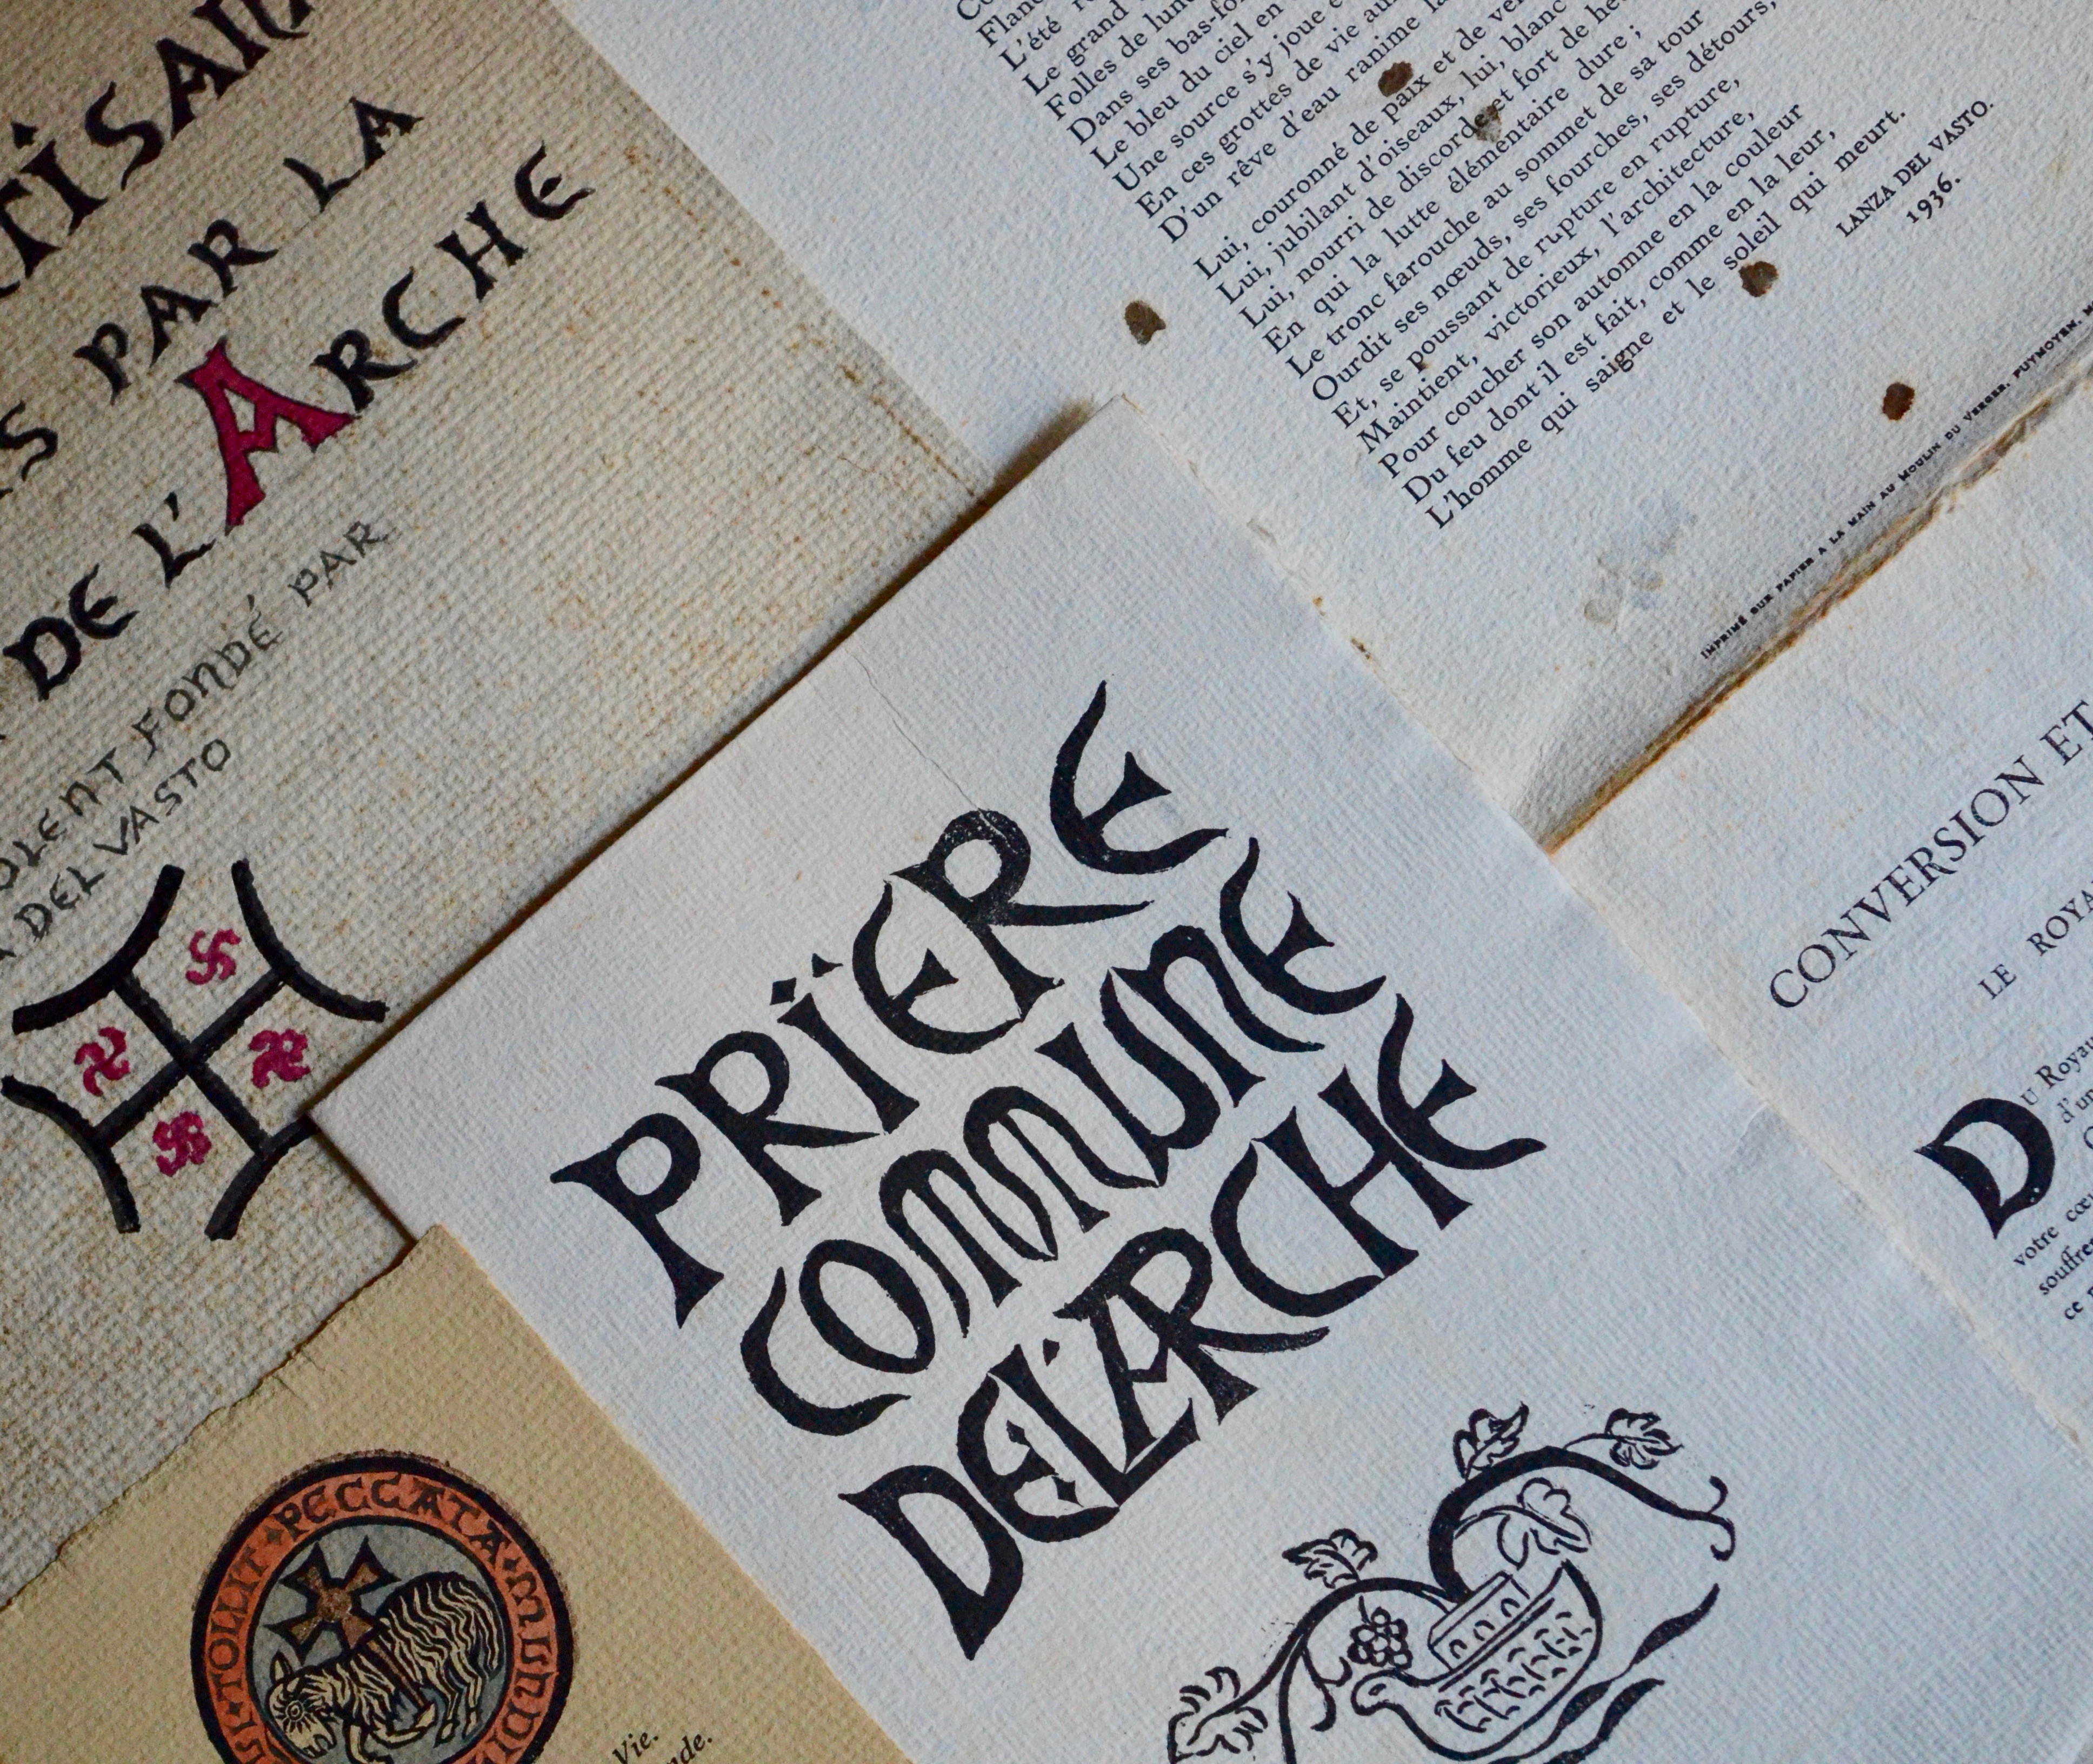 TISAN
S PAR LA
DE L'ARCHE
OLENT FONDÉ PAR
DEL VASTO
L'été
Le grand
Folles de lune
Dans ses bas-fo
Le bleu du ciel en
Une source s'y joue e
En ces grottes de vie au
D'un rêve d'eau ranime la
Lui, couronné de paix et de ve
Lui, jubilant d'oiseaux, lui, blanc
Lui, nourri de discorde et fort de he
En qui la lutte élémentaire dure ;
Le tronc farouche au sommet de sa tour
Ourdit ses nœuds, ses fourches, ses détours,
Et, se poussant de rupture en rupture,
Maintient, victorieux, l'architecture,
Pour coucher son automne en la couleur
Du feu dont il est fait, comme en la leur,
L'homme qui saigne et le soleil qui meurt.
LANZA DEL VASTO.
1936.
IMPRIMÉ SUR PAPIER A LA MAIN AU MOULIN DU VERGER, PUYMOYEN,
PRIERE
COMMUNE
DE L'ARCHE
CONVERSION ET
LE ROYA
DU Royau
d'un
votre cœu
souffre
ce
TOLLIT · PECCATA · MUNDI
Vie.
nde.